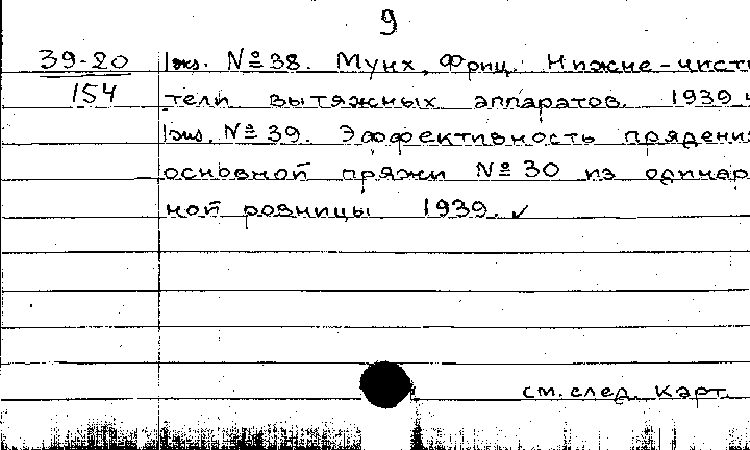 9
39-20 1 экз. № 38. Мунх, Фриц. Нижние-чисти
154 тели вытяжных аппаратов. 1939
1 экз. № 39. Эффективность прядения
основной пряжи № 30 из одинар
ной ровницы 1939. ✓
см. след. карт.